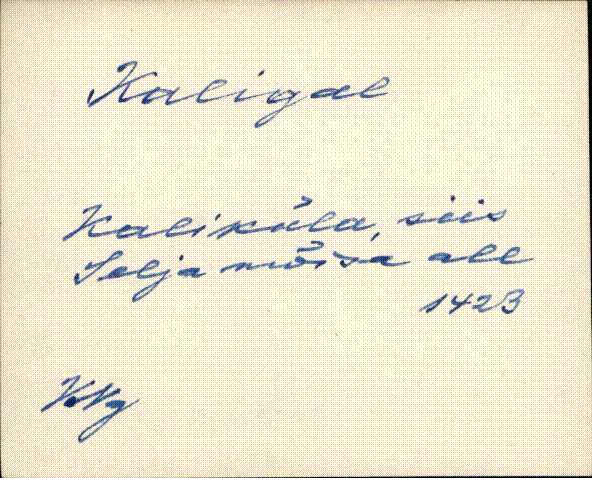 Kaligal
Kaliküla, siis
Selja mõisa all
1423
KNg